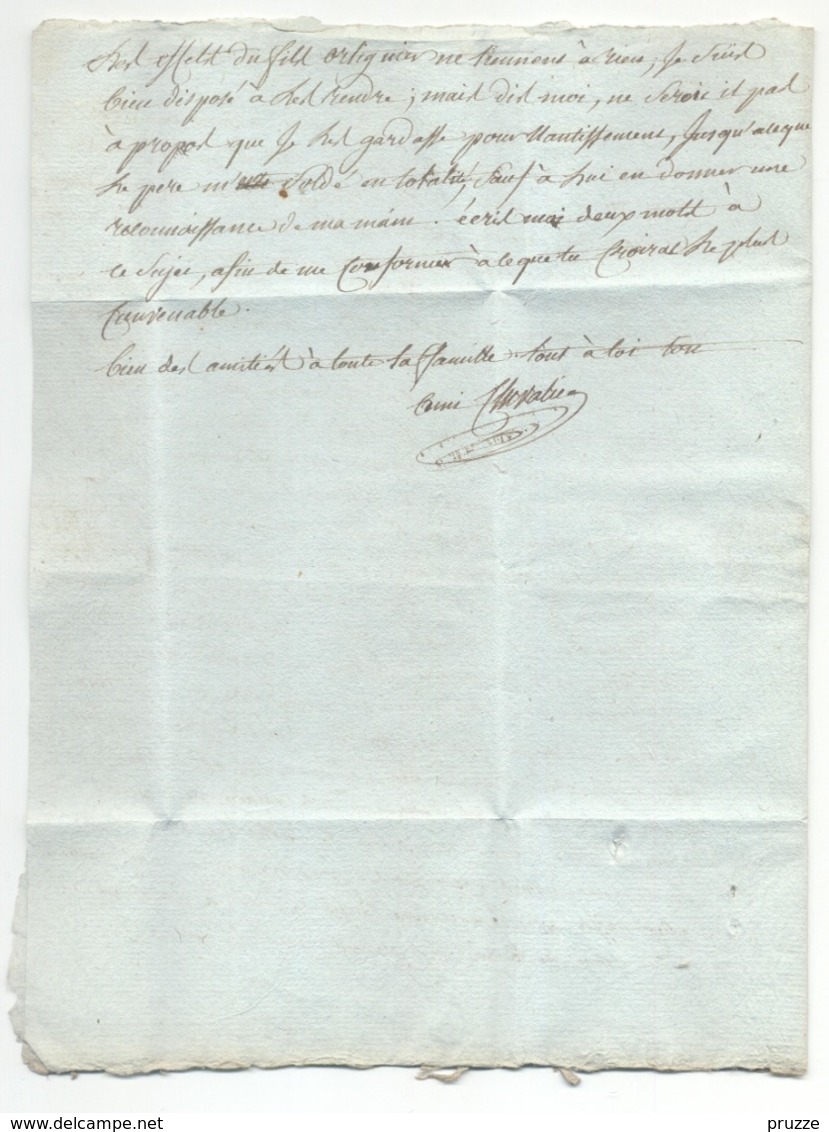 Les effets du fils ortiguier ne tiennent à rien, Je suis
bien disposé à les rendre ; mais dis moi, ne seroit il pas
à propos que Je les gardasse pour Nantissement, Jusqu'aceque
le pere m' soldé en totalité, sauf à lui en donner une
reconnaissance de ma main. écris moi deux mots à
ce sujet, afin de me Conformer à ceque tu Croiras le plus
Convenable.
bien des amitiés à toute la famille tout à toi ton
ami Chevalier
delcampe.net
pruzze